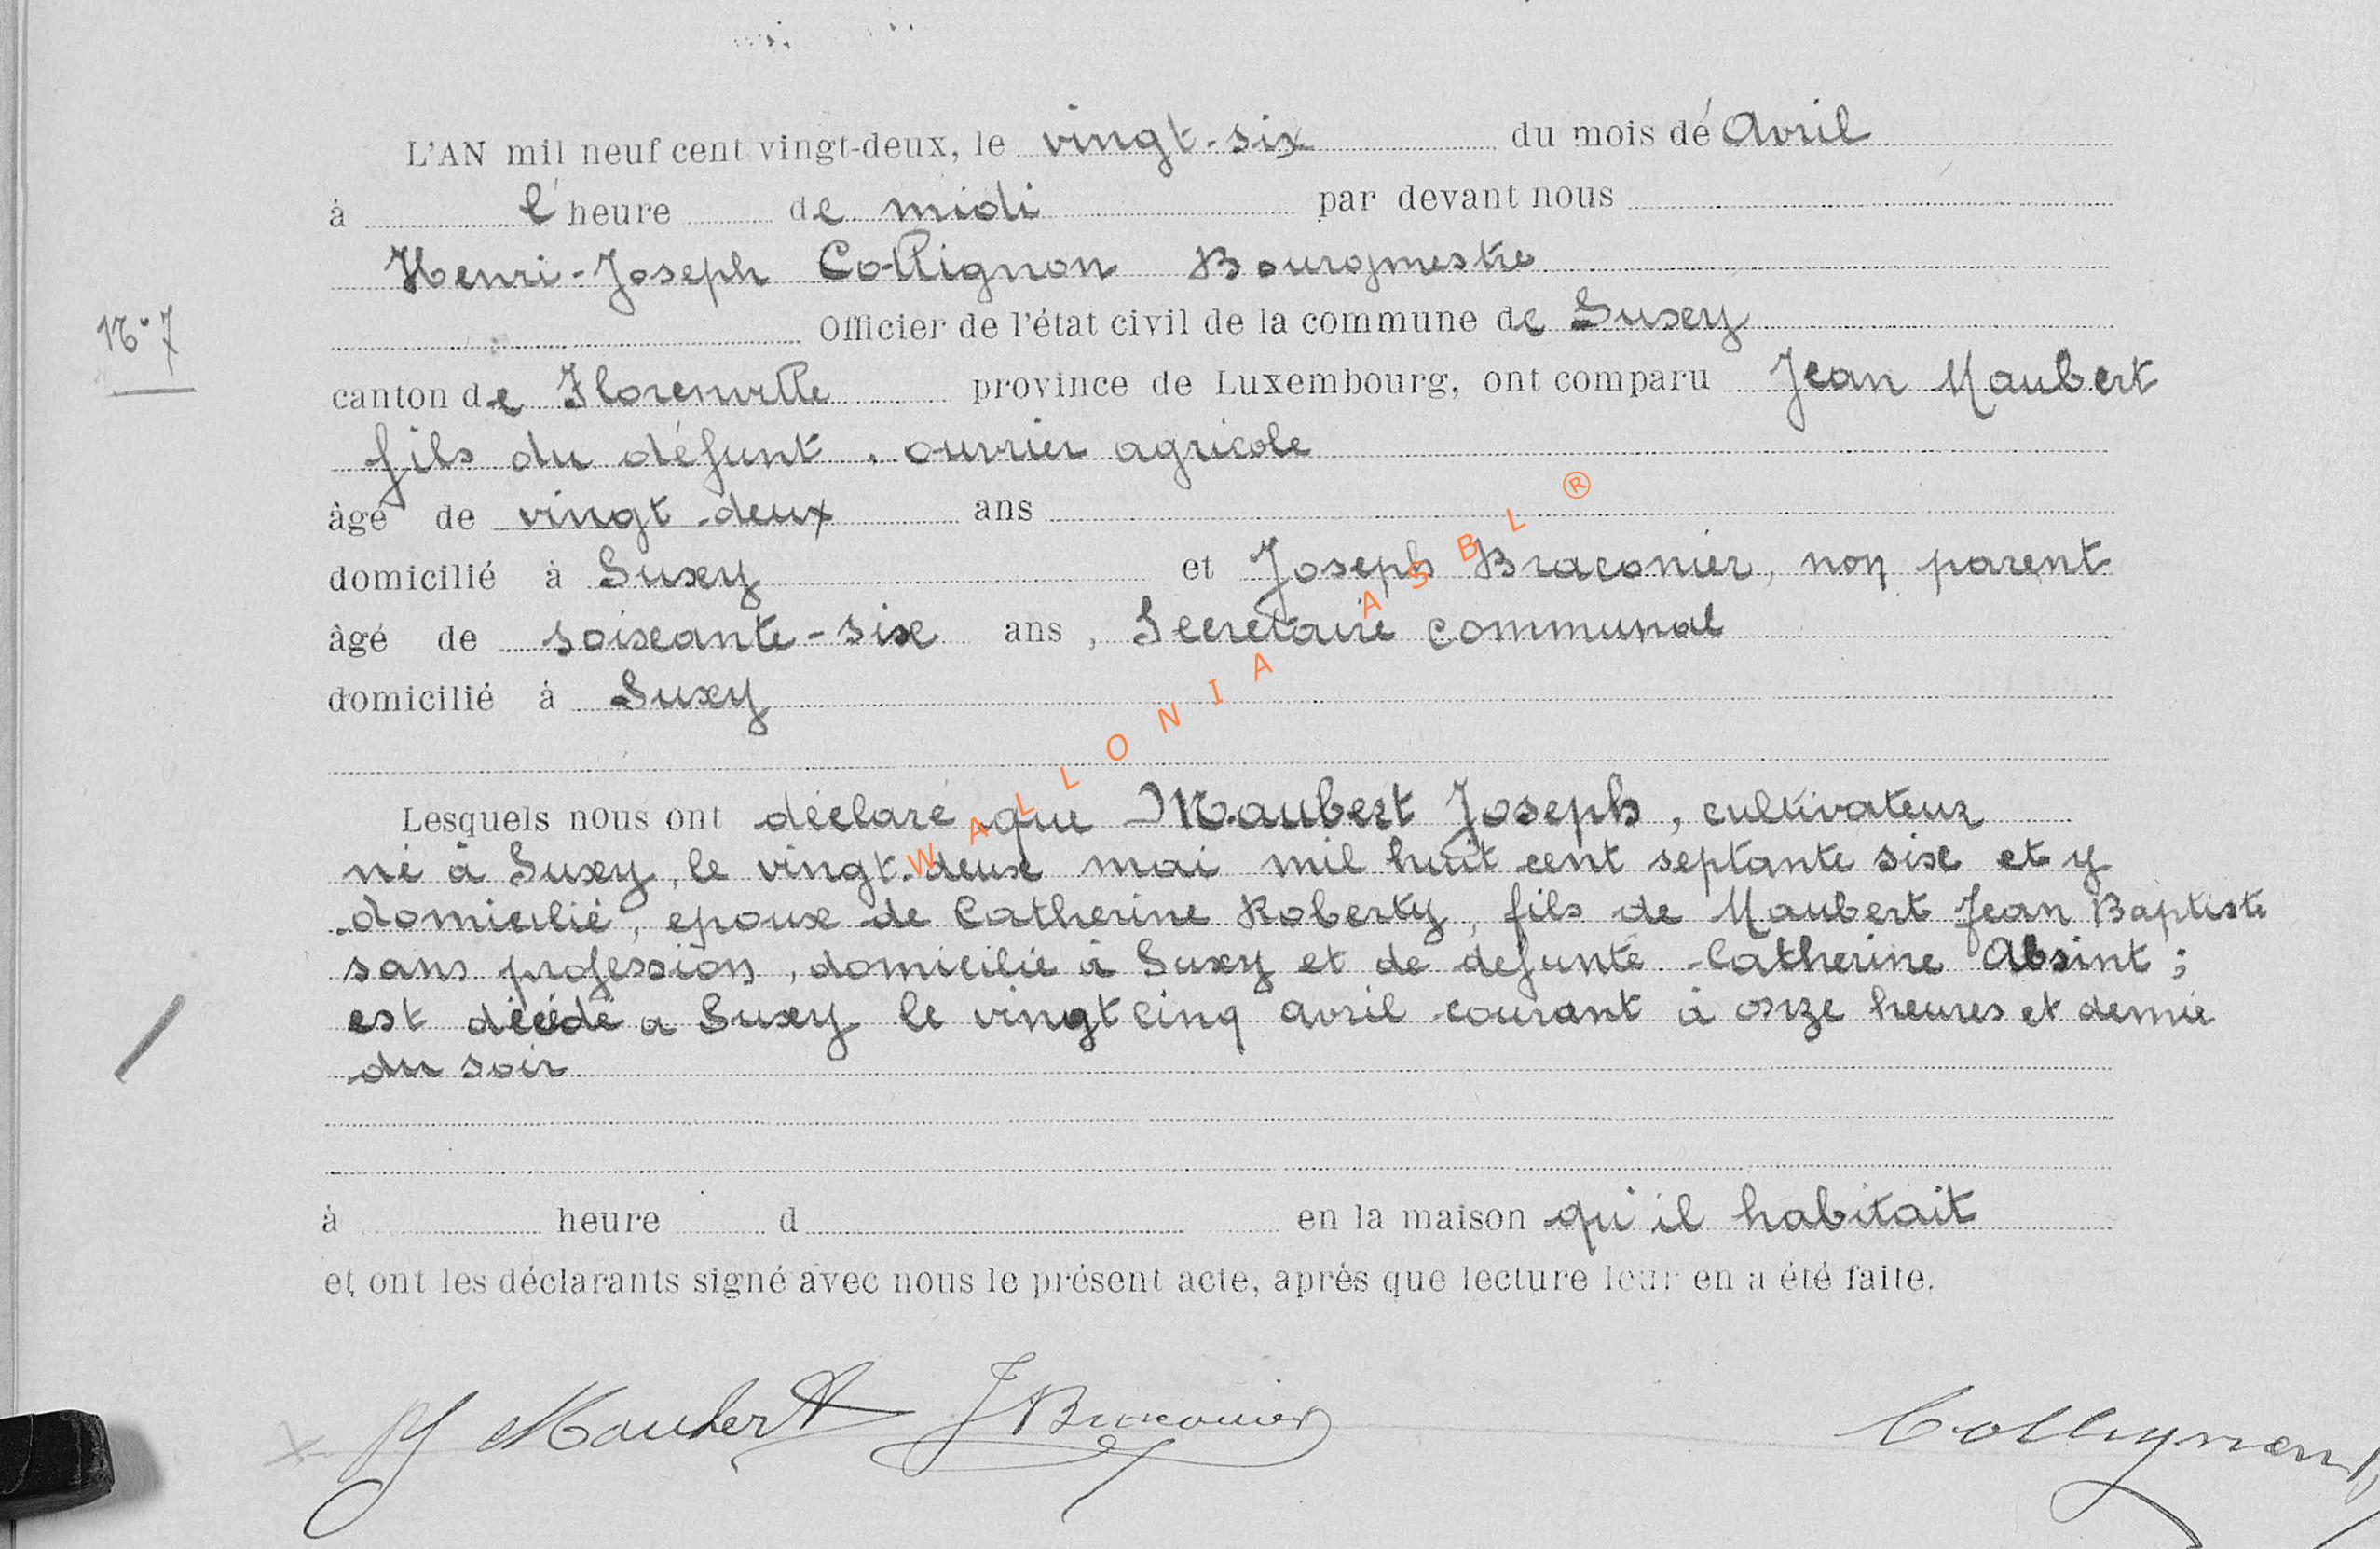 L'AN mil neuf cent vingt-deux, le vingt-six du mois de Avril
à l'heure de midi par devant nous
Henri-Joseph Collignon Bourgmestre
Officier de l'état civil de la commune de Suxey
N° 7
canton de Florenville province de Luxembourg, ont comparu Jean Maubert
fils du défunt, ouvrier agricole
âgé de vingt-deux ans
domicilié à Suxy et Joseph Braconier, non parent
âgé de soixante-six ans, Secretaire communal
domicilié à Suxy
WALLONIA ASBL ®
Lesquels nous ont déclaré que Maubert Joseph, cultivateur
né à Suxy, le vingt-deux mai mil huit cent septante six et y
domicilié, epoux de Catherine Roberty, fils de Maubert Jean Baptiste
sans profession, domicilié à Suxy et de defunte Catherine Absint;
est décédé a Suxy le vingt cinq avril courant à onze heures et demie
du soir
à heure d en la maison qu'il habitait
et ont les déclarants signé avec nous le présent acte, aprés que lecture leur en a été faite.
J Maubert J Braconier Collignon